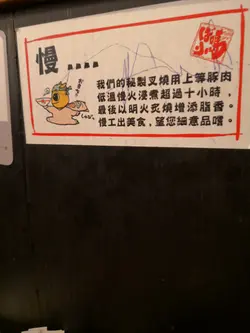 慢……
我們的秘製叉燒用上等豚肉
低溫慢火浸煮超過十小時，
最後以明火炙燒增添脂香。
慢工出美食，望您細意品嚐。